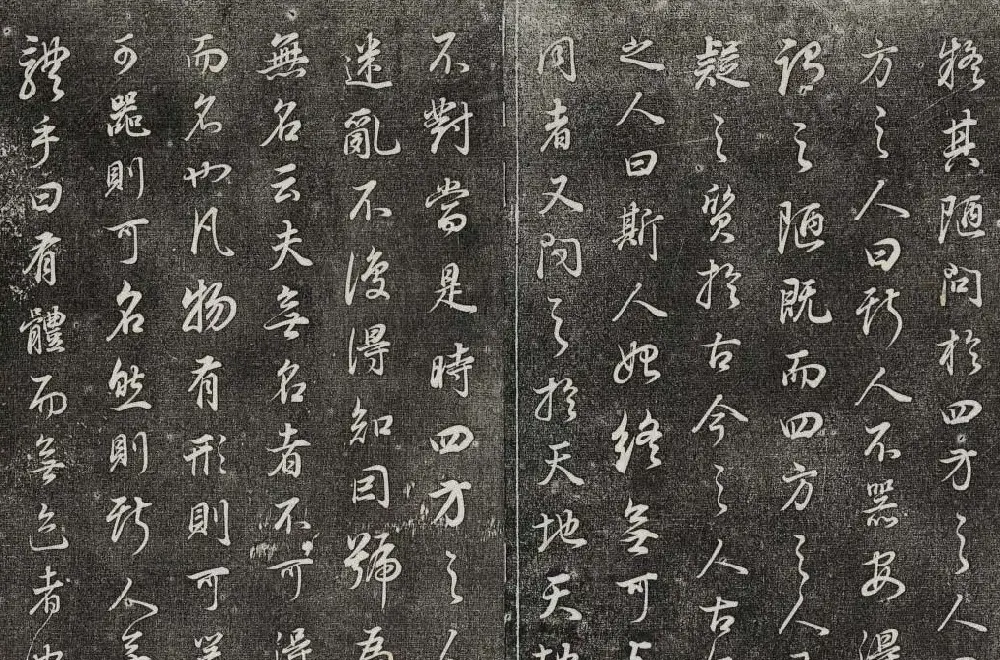 將其陋問於四方之人
方之人曰斯人不器安得
謂之陋既而四方之人
疑之質於古今之人古
之人曰斯人始終無可
同者又問之於天地天地
不對當是時四方之人
迷亂不復得知因號為
無名云夫無名者不可得
而名也凡物有形則可
可器則可名然則斯人無
體乎曰有體而無色者